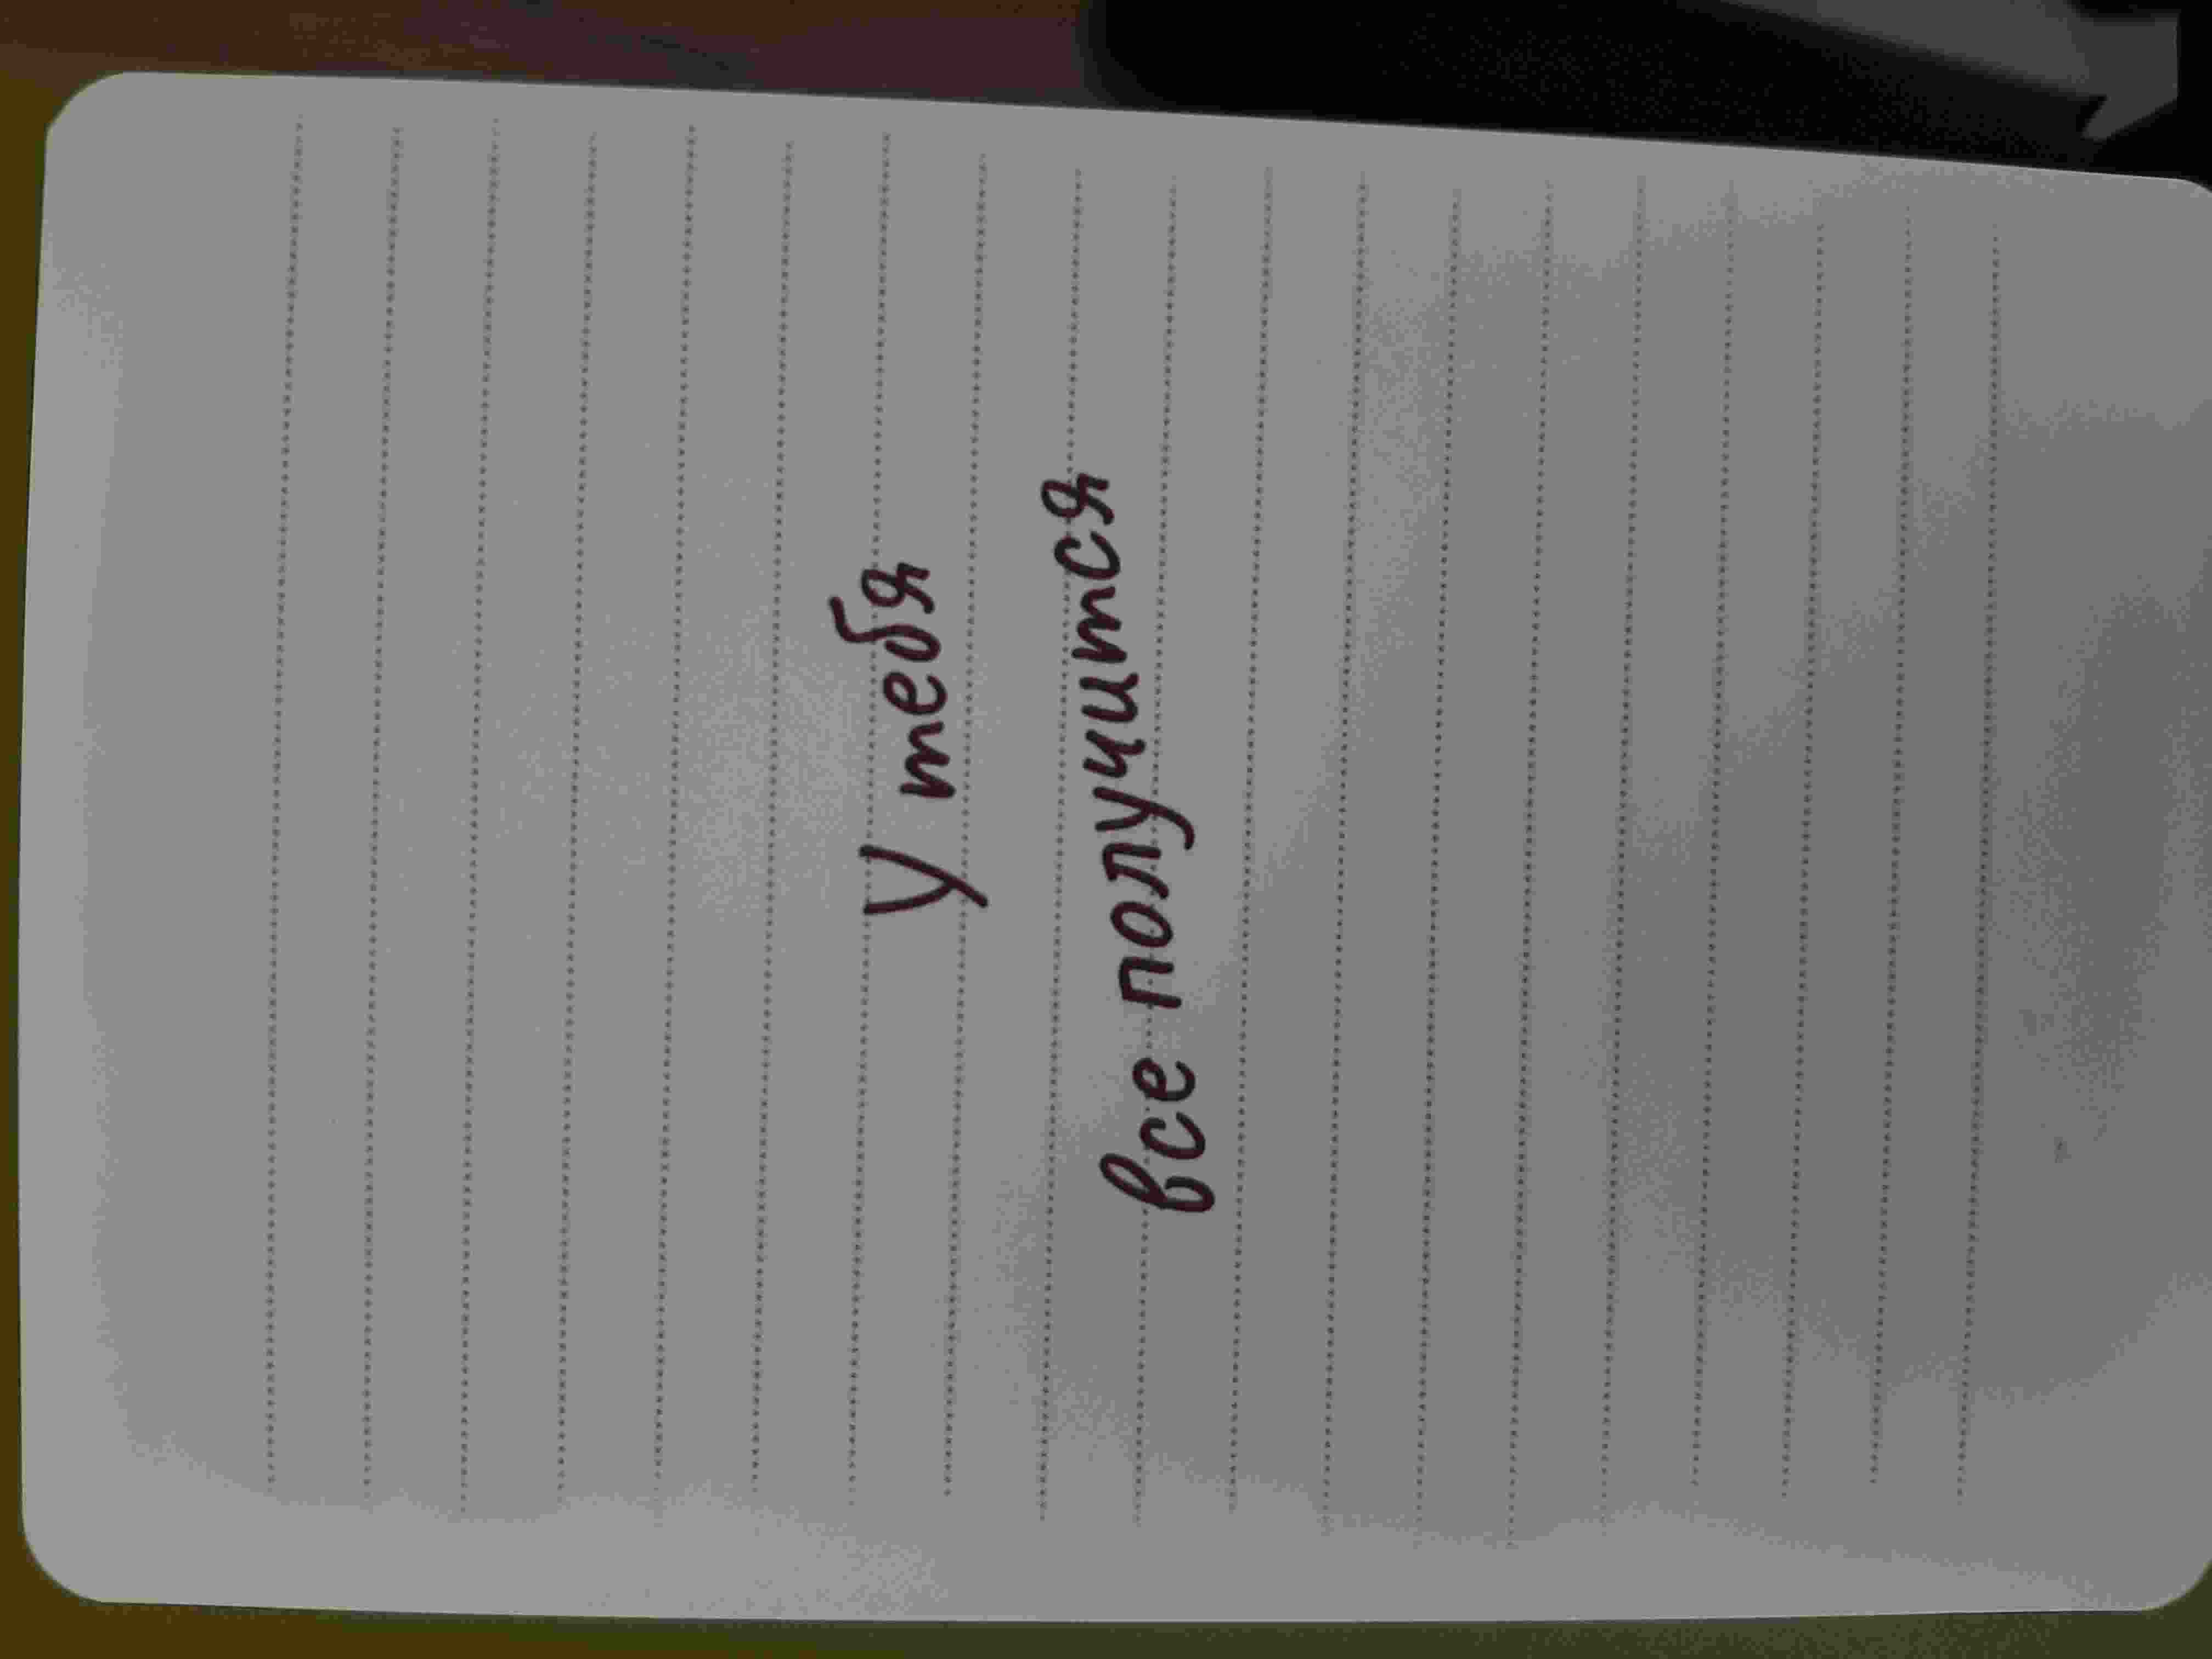 У тебя
все получится